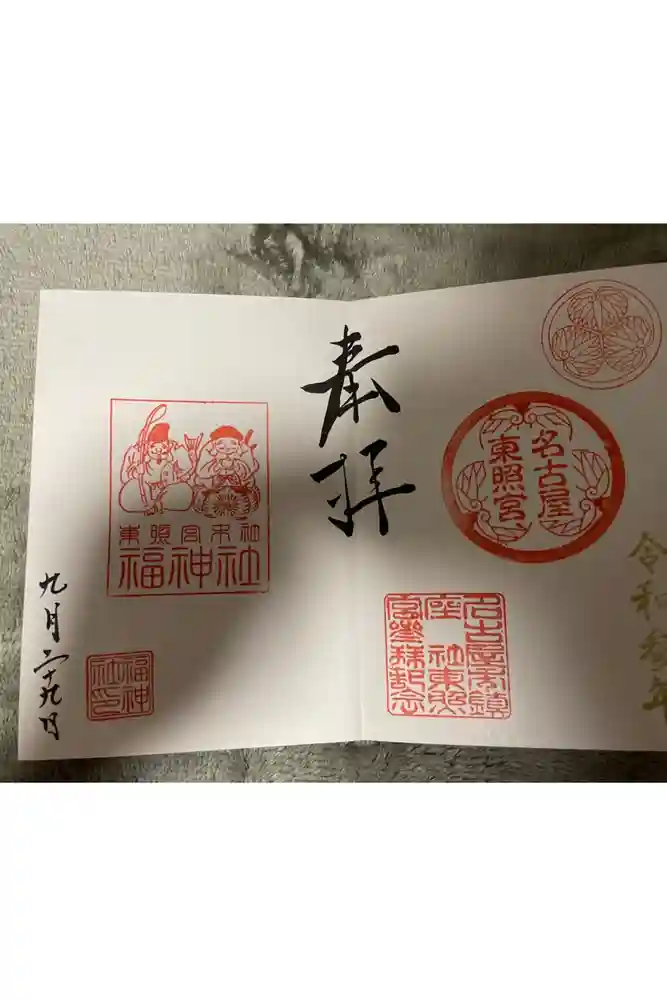 令和参年
名古屋
東照宮
名古屋市鎮
座 社東照
宮參拜記念
奉拝
東照宮末社
福神社
福神
社印
九月二十九日